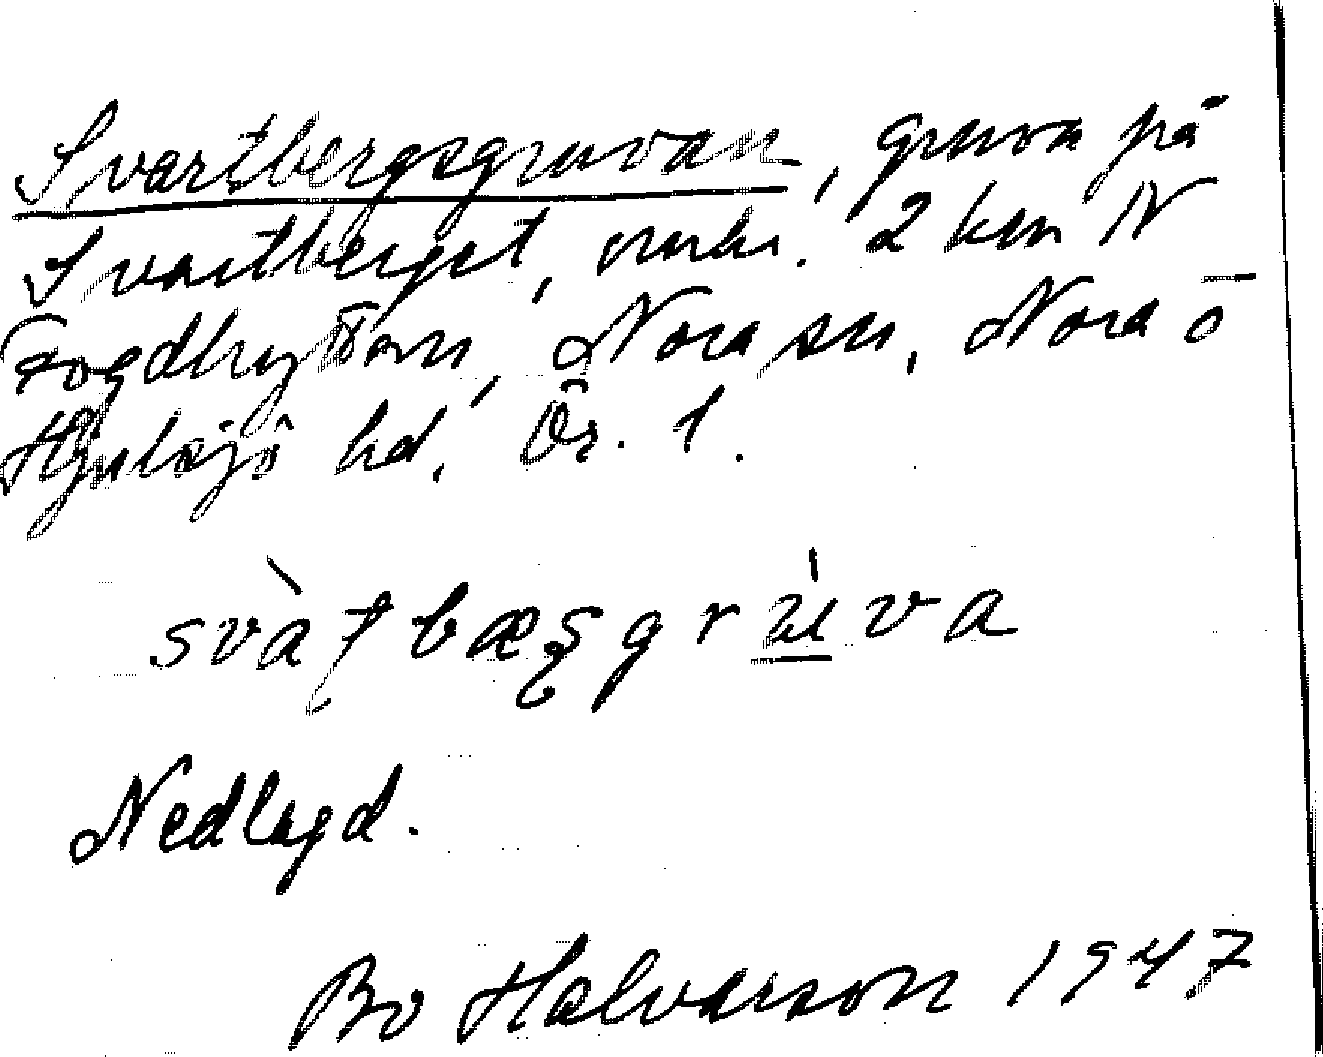 Svartbergsgruvan, gruva på
Svartberget, omkr. 2 km N
Fogdhyttan, Nora sn, Nora o
Hjulsjö hd. Ör. l.
svàʈbæʂgrùva
Nedlagd.
Bo Halvarson 1947